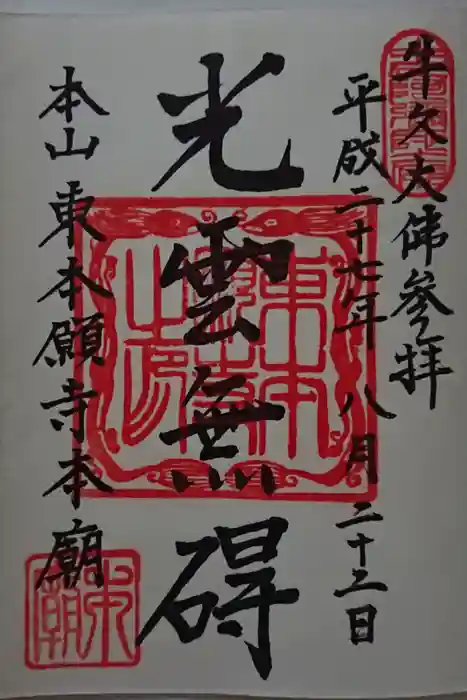 牛久大佛參拝
平成二十七年八月二十二日
光雲無碍
本山東本願寺本廟
東本願寺之印
本廟